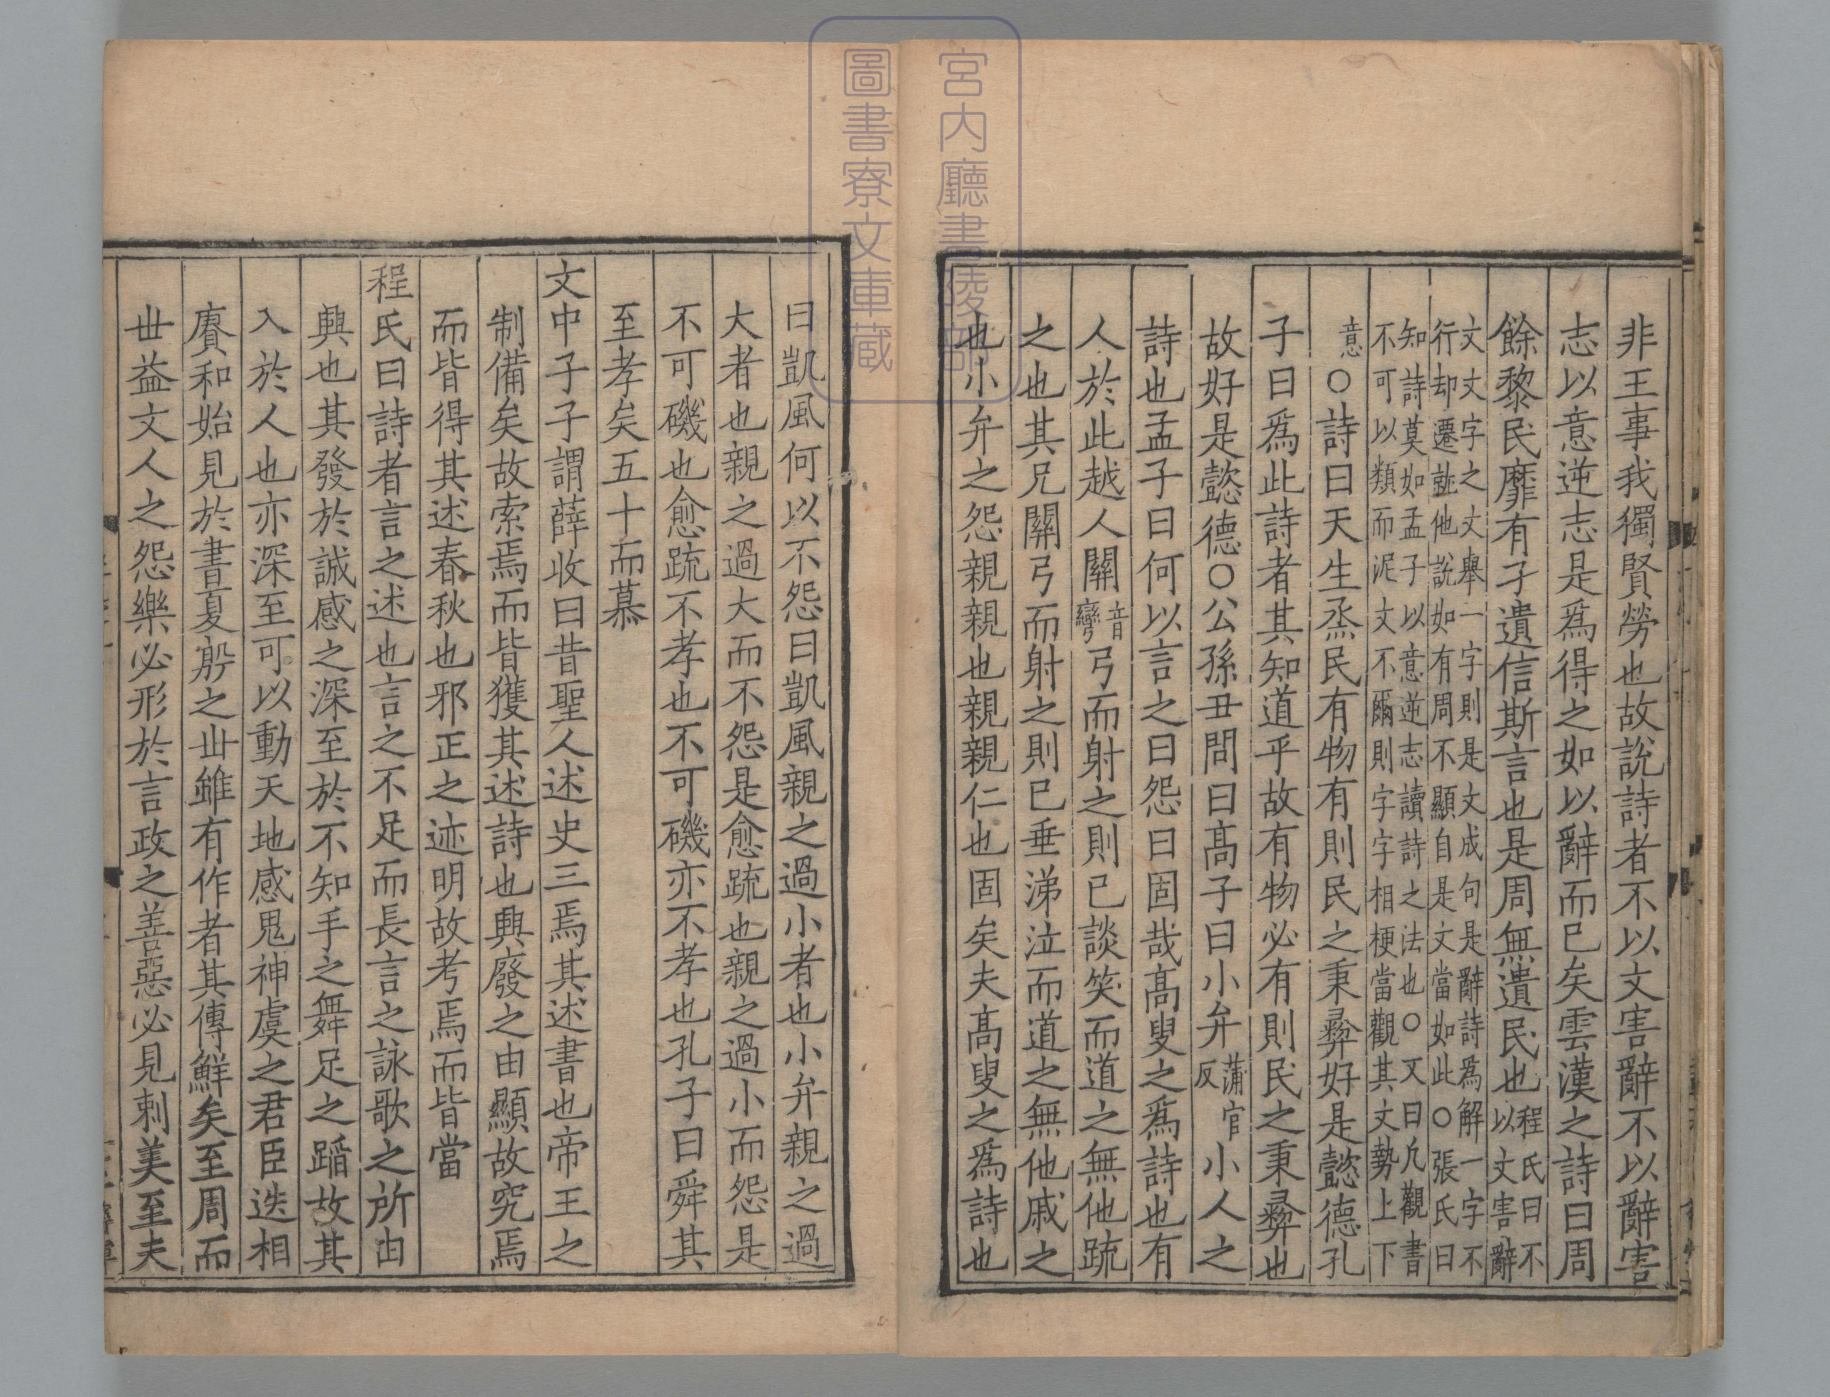 非王事我獨賢勞也故說詩者不以文害辭不以辭害
志以意逆志是爲得之如以辭而已矣雲漢之詩曰周
餘黎民靡有孑遺信斯言也是周無遺民也程氏曰不以文害辭
文文字之文舉一字則是文成句是辭詩爲解一字不
行却遷就他說如有周不顯自是文當如此○張氏曰
知詩莫如孟子以意逆志讀詩之法也○又曰凢觀書
不可以類而泥文不爾則字字相梗當觀其文勢上下
意○詩曰天生烝民有物有則民之秉彛好是懿德孔
子曰爲此詩者其知道乎故有物必有則民之秉彛也
故好是懿德○公孫丑問曰高子曰小弁蒲官反小人之
詩也孟子曰何以言之曰怨曰固哉高叟之爲詩也有
人於此越人關音彎弓而射之則已談笑而道之無他疏
之也其兄關弓而射之則已垂涕泣而道之無他戚之
也小弁之怨親親也親親仁也固矣夫高叟之爲詩也
曰凱風何以不怨曰凱風親之過小者也小弁親之過
大者也親之過大而不怨是愈疏也親之過小而怨是
不可磯也愈疏不孝也不可磯亦不孝也孔子曰舜其
至孝矣五十而慕
文中子子謂薛收曰昔聖人述史三焉其述書也帝王之
制備矣故索焉而皆獲其述詩也興廢之由顯故究焉
而皆得其述春秋也邪正之迹明故考焉而皆當
程氏曰詩者言之述也言之不足而長言之詠歌之所由
興也其發於誠感之深至於不知手之舞足之蹈故其
入於人也亦深至可以動天地感鬼神虞之君臣迭相
賡和始見於書夏殷之丗雖有作者其傳鮮矣至周而
丗益文人之怨樂必形於言政之善惡必見刺美至夫
宮内廳書陵部
圖書寮文庫藏